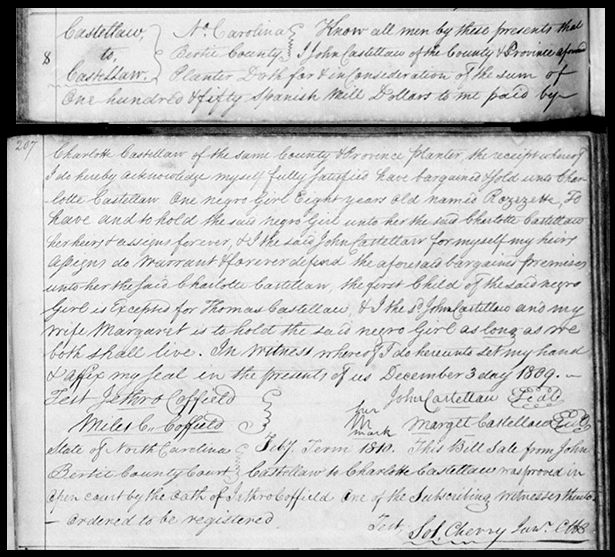 Castellaw, No. Carolina Know all men by these presents that
to Bertie County I John Castellaw of the County & Province aforesd
8 Castellaw. Planter Doth for & in Consideration of the sum of
One hundred & fifty Spanish Mill Dollars to me paid by
207
Charlote Castellaw of the same County & Provence planter, the receipt whereof
I do hereby acknowledge myself fully satisfied have bargained & sold unto Char-
lotte Castellaw One negro Girl Eight years old named Rozizette, To
have and to hold the said negro Girl unto her the said Charlotte Castellaw
her heirs & assigns forever, & I the said John Castellaw for myself my heirs
assigns do Warrant & forever defend the aforesaid bargained premises
unto her the said Charlotte Castellaw, the first Child of the said negro
Girl is Excepted for Thomas Castellaw, & I the sd. John Castellaw and my
wife Margaret is to hold the said negro Girl as long as we
both shall live. In Witness whereof I do hereunto set my hand
& affix my seal in the presents of us December 3 day 1809. —
Test Jethro Coffield John Castellaw Seal
Miles C. Coffield her M mark Margett Castellaw Seal
State of North Carolina Feby. Term 1810. This Bill Sale from John
Bertie County Court Castellaw to Charlotte Castellaw was proved in
open court by the Oath of Jethro Coffield One of the Subscribing witnesses thereto
— ordered to be registered Test Sol. Cherry Junr. C